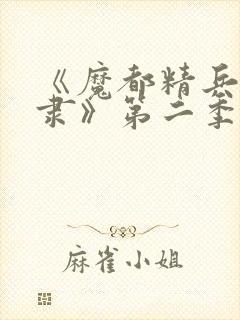 《魔都精兵
隶》第二季
麻雀小姐